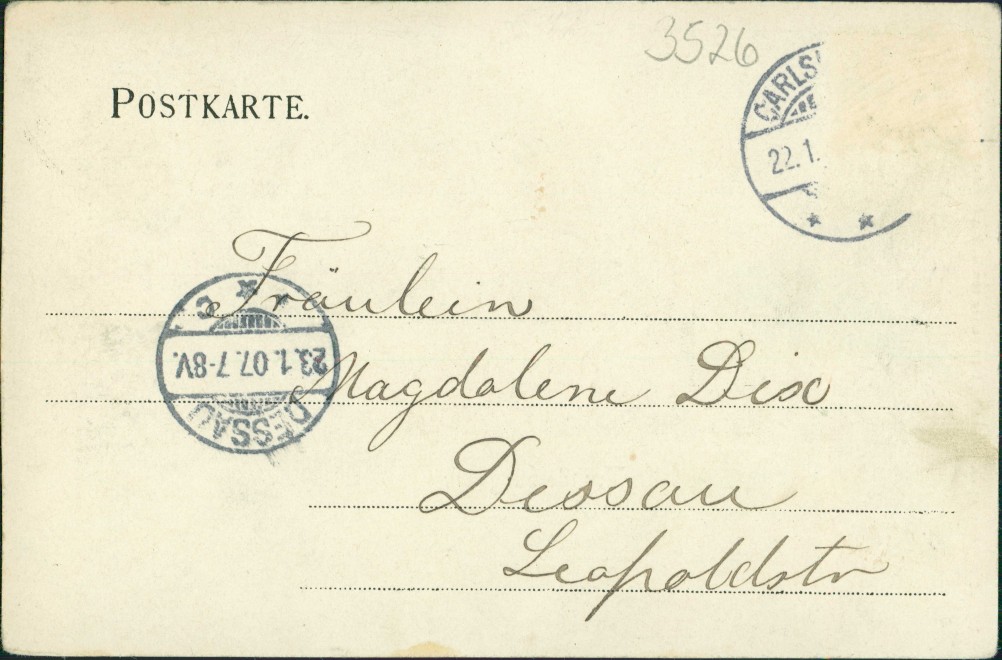 3526
POSTKARTE.
CARLS
22.1.
Fräulein
23.1.07.7-8V.
DESSAU
Magdalene Dix
Dessau
Leopoldstr